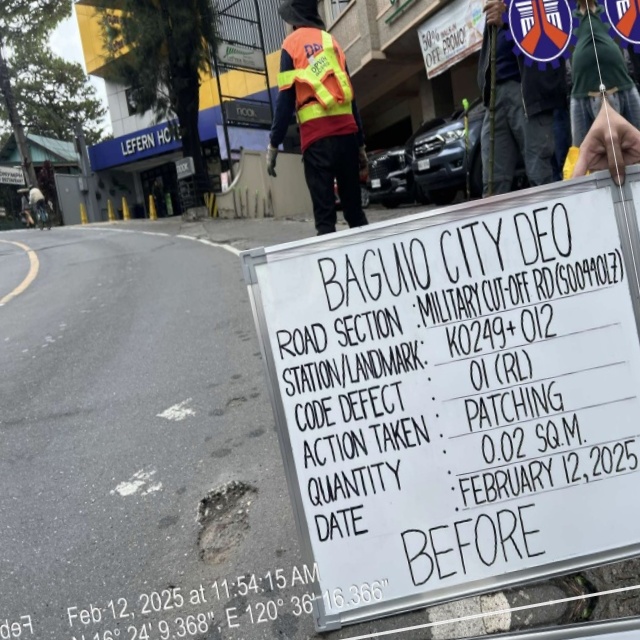 LEFERN HO
50%
OFF PROMO
BAGUIO CITY DEO
ROAD SECTION : MILITARY CUT-OFF RD (S00440LZ)
STATION/LANDMARK: K0249+012
CODE DEFECT : 01 (RL)
ACTION TAKEN : PATCHING
QUANTITY : 0.02 SQ.M.
DATE : FEBRUARY 12, 2025
BEFORE
Feb 12, 2025 at 11:54:15 AM
N 16° 24' 9.368", E 120° 36' 16.366"